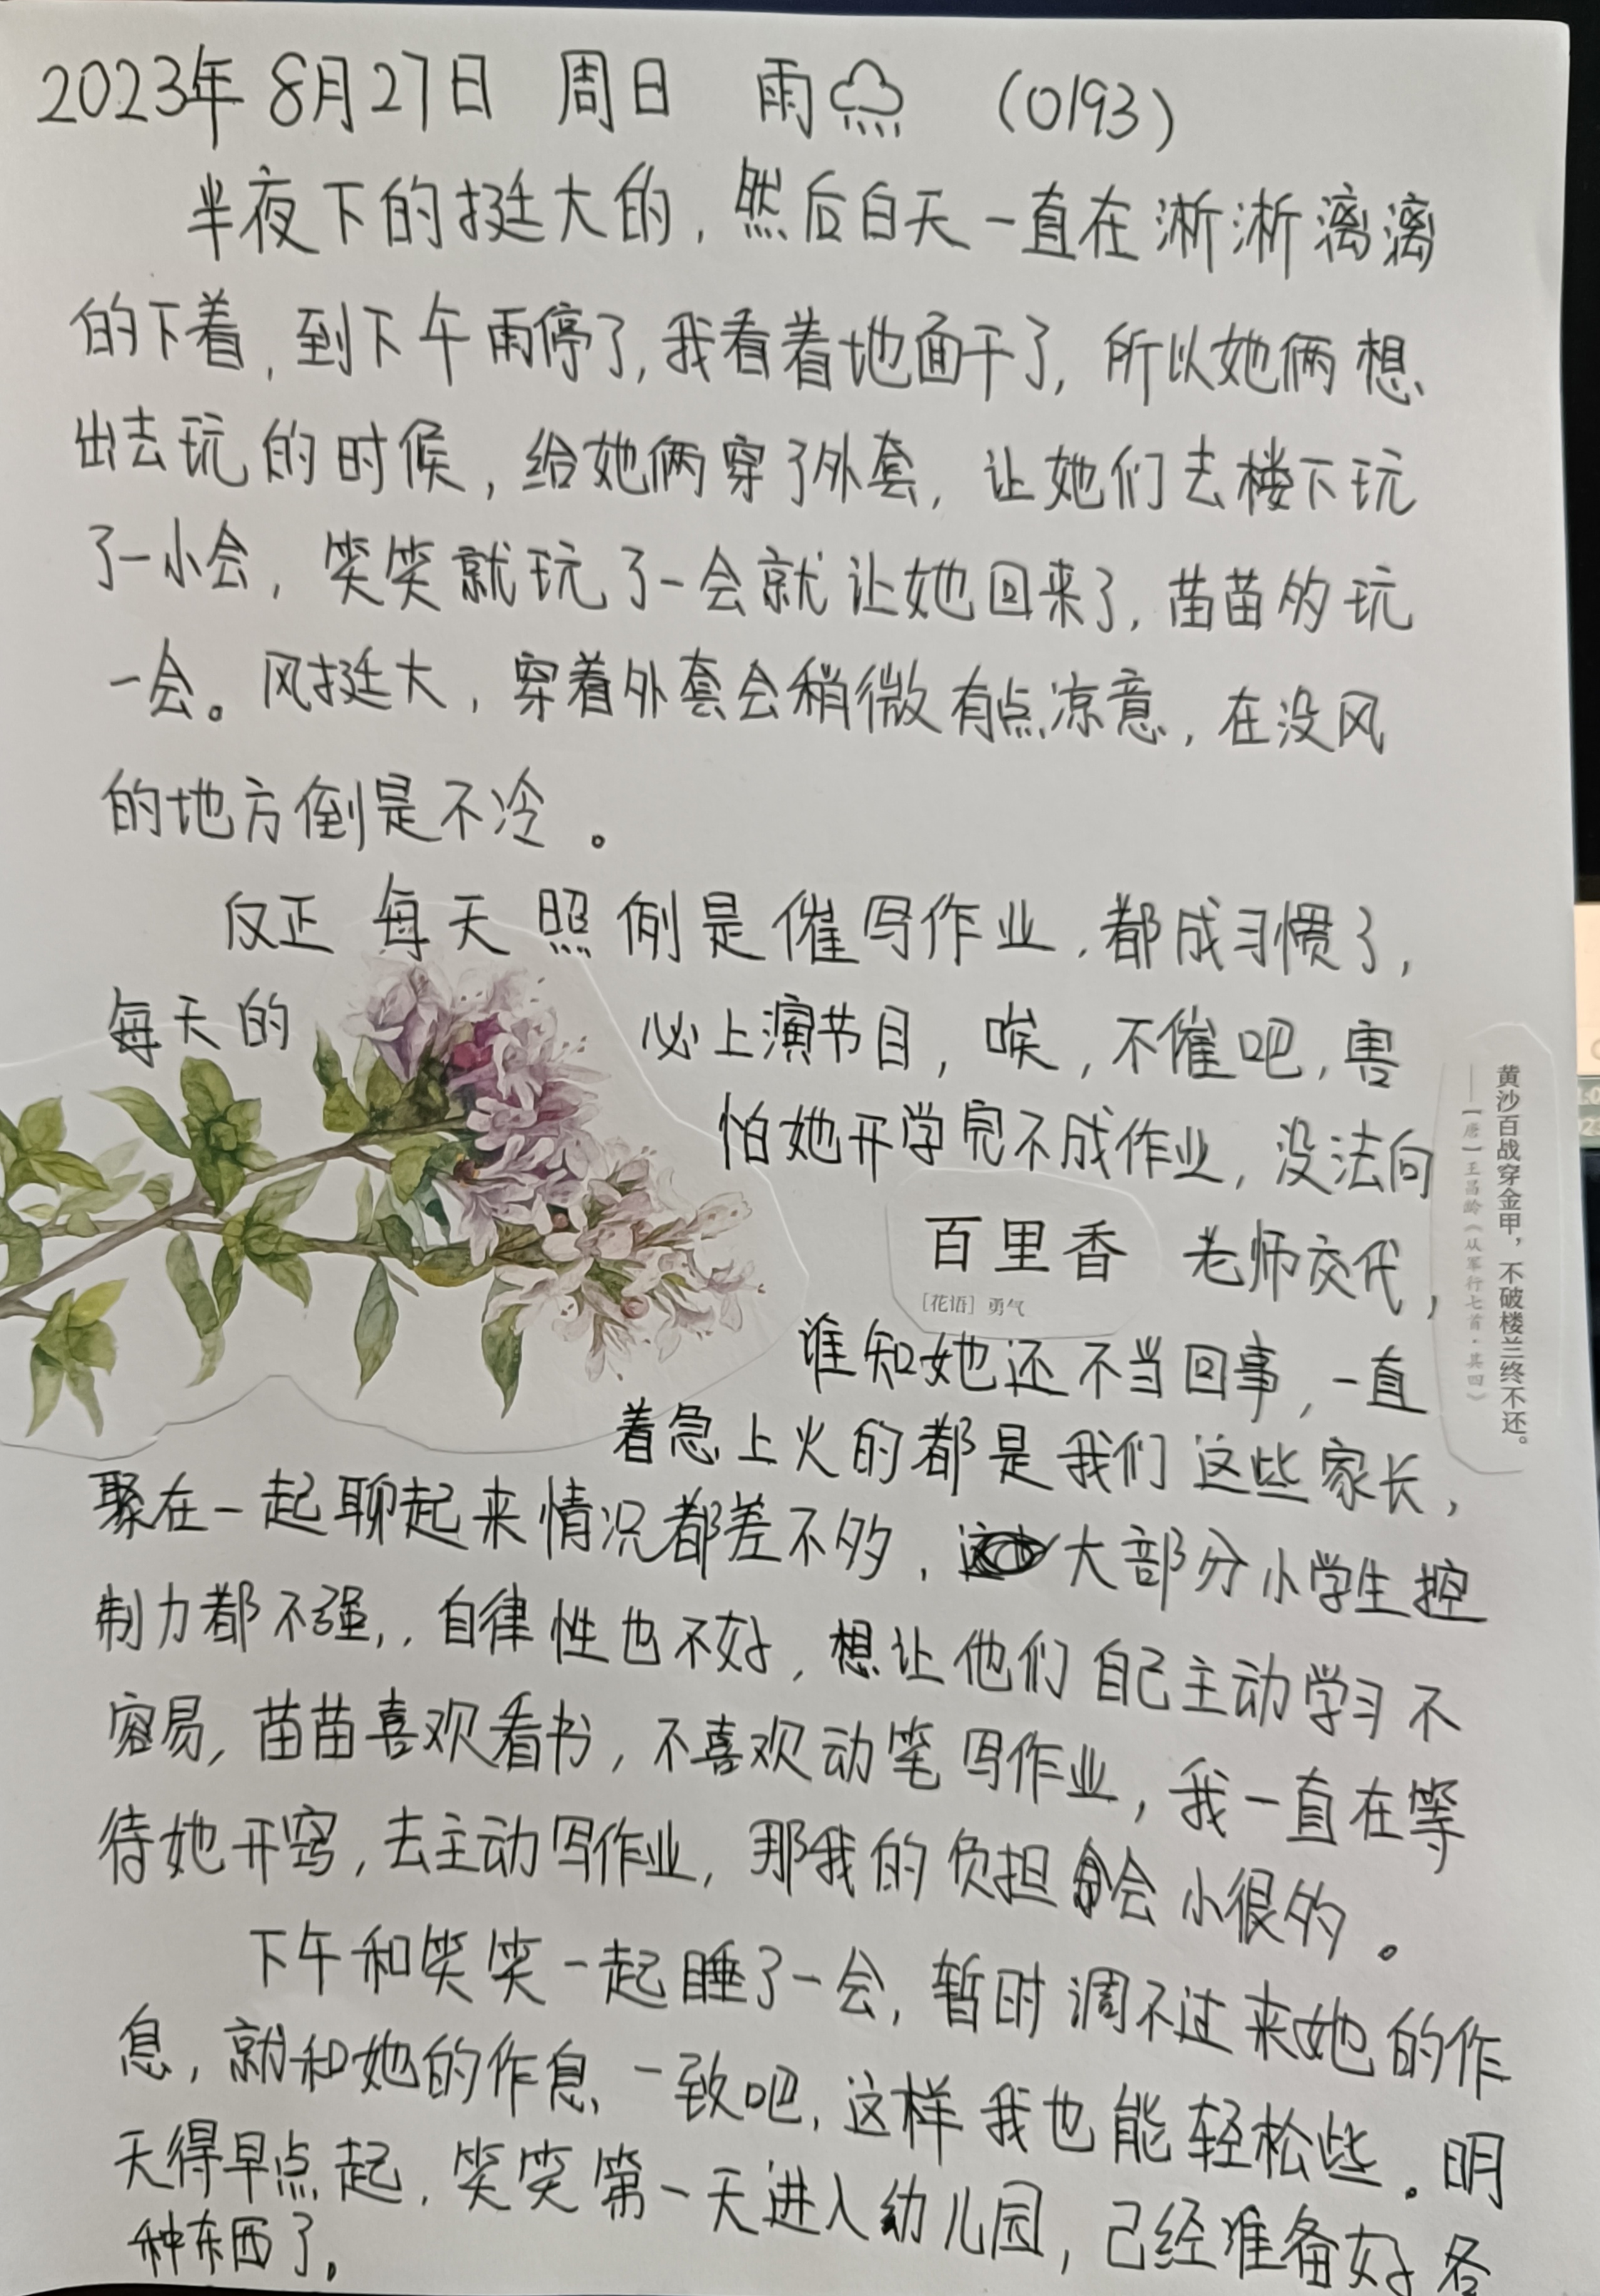 2023年 8月27日 周日 雨 (0193)
半夜下的挺大的，然后白天一直在淅淅漓漓
的下着，到下午雨停了，我看着地面干了，所以她俩想
出去玩的时候，给她俩穿了外套，让她们去楼下玩
了一小会，笑笑就玩了一会就让她回来了，苗苗多玩
一会。风挺大，穿着外套会稍微有点凉意，在没风
的地方倒是不冷。
反正每天照例是催写作业，都成习惯了，
每天的必上演节目，唉，不催吧，害
怕她开学完不成作业，没法向
老师交代，
百里香
[花语] 勇气
谁知她还不当回事，一直
着急上火的都是我们这些家长，
聚在一起聊起来情况都差不多，大部分小学生控
制力都不强，，自律性也不好，想让他们自己主动学习不
容易，苗苗喜欢看书，不喜欢动笔写作业，我一直在等
待她开窍，去主动写作业，那我的负担会小很多。
下午和笑笑一起睡了一会，暂时调不过来她的作
息，就和她的作息一致吧，这样我也能轻松些。明
天得早点起，笑笑第一天进入幼儿园，已经准备好各
种东西了。
黄沙百战穿金甲，不破楼兰终不还。
——［唐］王昌龄《从军行七首·其四》